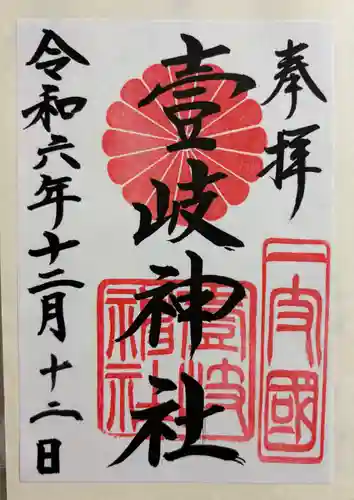 奉拝
壹岐神社
令和六年十二月十二日
一支國
壹岐
神社